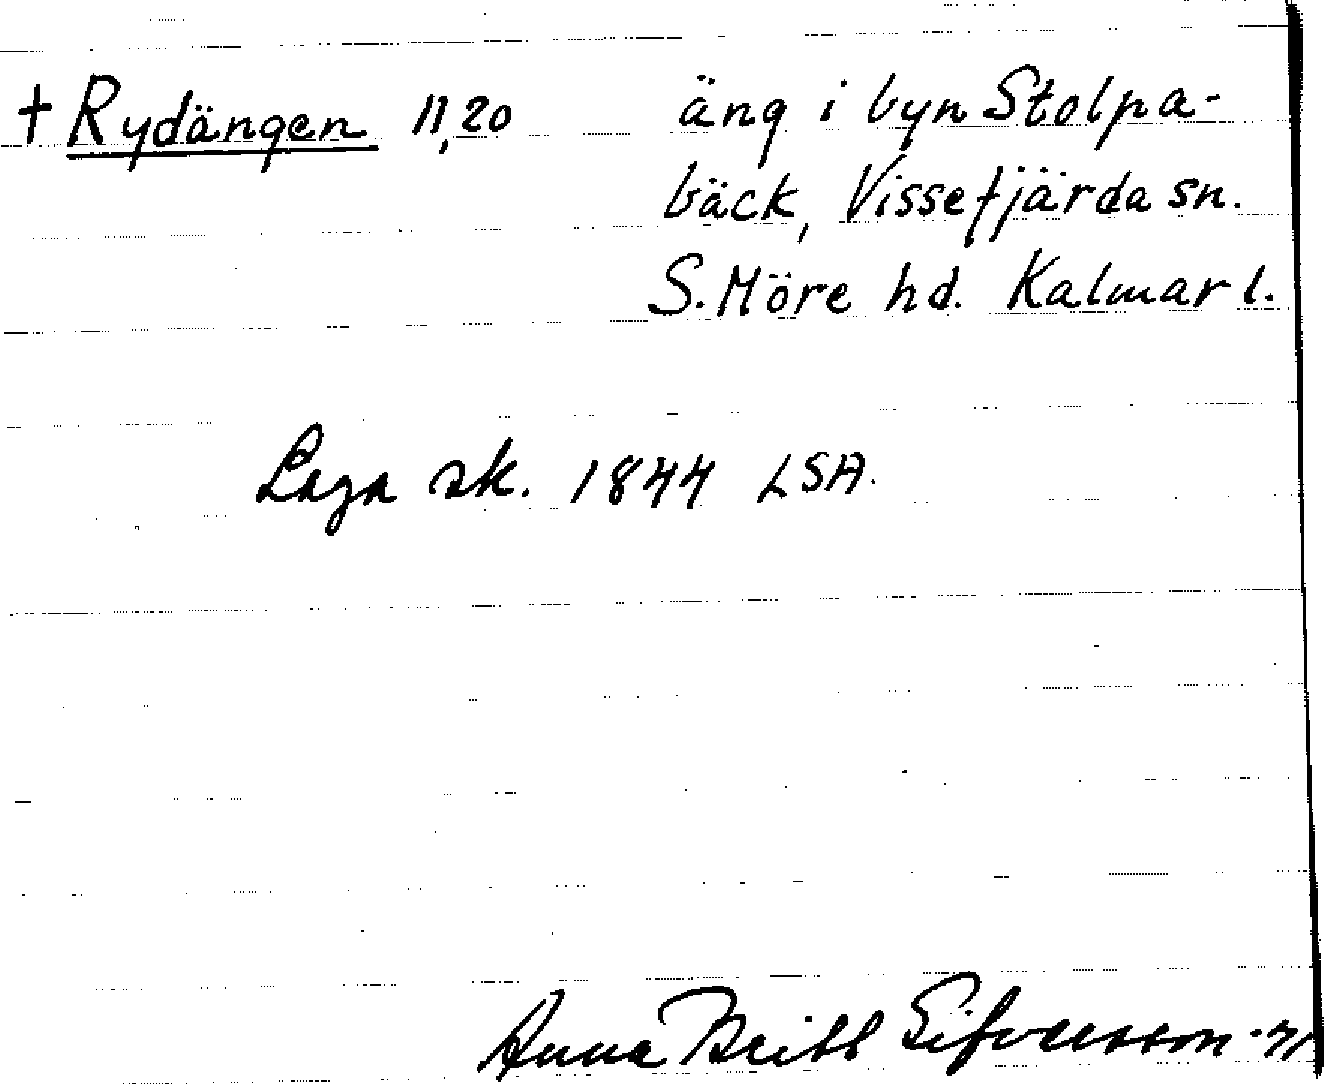 † Rydängen 11,20 äng i byn Stolpa-
bäck, Vissefjärda sn.
S. Möre hd. Kalmar l.
Laga sk. 1844 LSA.
Anna Britt -71